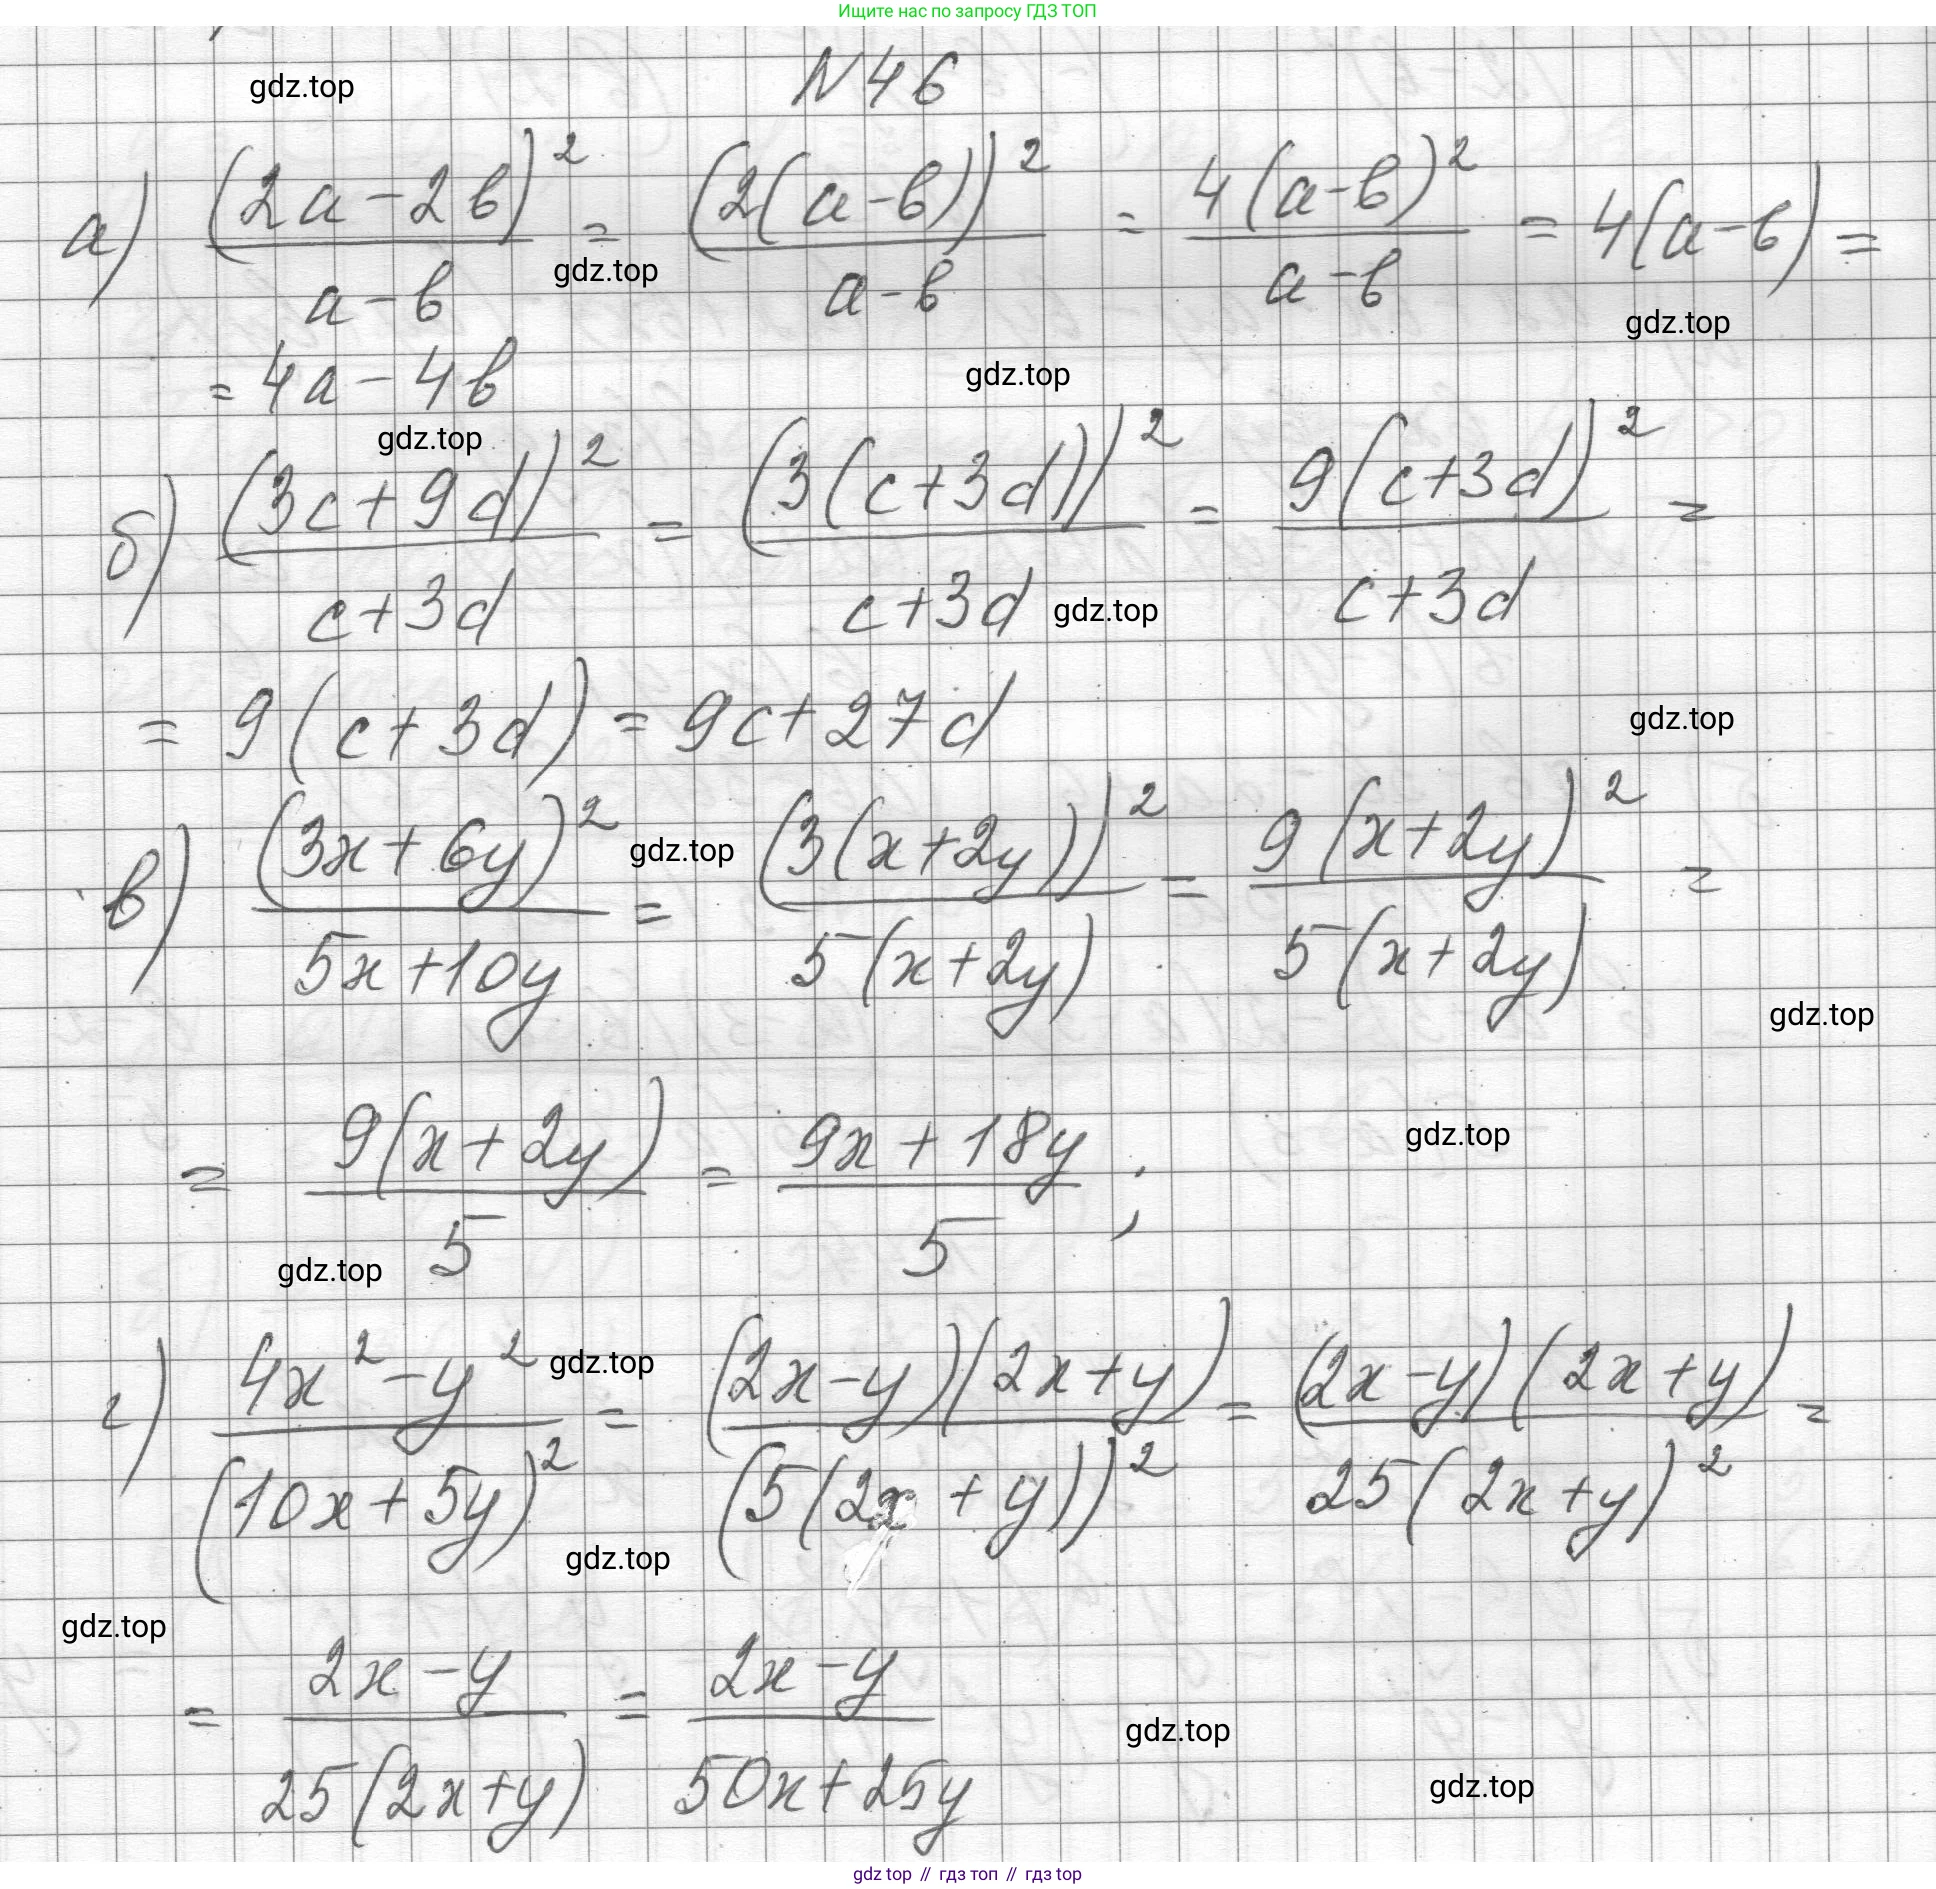 Ищите нас по запросу ГДЗ ТОП
N46
gdz.top
а) (2a-2b)²/(a-b) = (2(a-b))²/(a-b) = 4(a-b)²/(a-b) = 4(a-b) =
gdz.top
gdz.top
= 4a-4b
gdz.top
gdz.top
б) (3c+9d)²/(c+3d) = (3(c+3d))²/(c+3d) = 9(c+3d)²/(c+3d) =
gdz.top
= 9(c+3d) = 9c+27d
gdz.top
в) (3x+6y)²/(5x+10y) = (3(x+2y))²/(5(x+2y)) = 9(x+2y)²/(5(x+2y)) =
gdz.top
gdz.top
= 9(x+2y)/5 = (9x+18y)/5 ;
gdz.top
gdz.top
г) (4x²-y²)/(10x+5y)² = (2x-y)(2x+y)/(5(2x+y))² = (2x-y)(2x+y)/(25(2x+y)²) =
gdz.top
gdz.top
gdz.top
= (2x-y)/(25(2x+y)) = (2x-y)/(50x+25y)
gdz.top
gdz.top
gdz top // гдз топ // гдз top